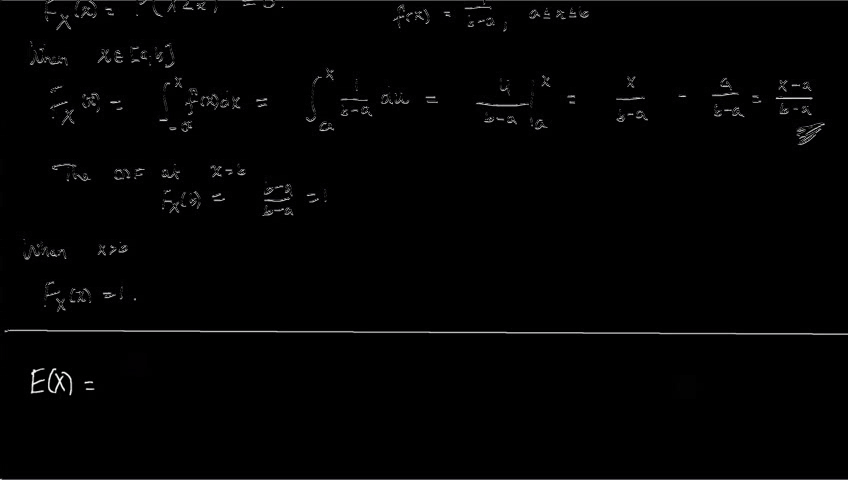 F_X(x) = P(X≤x) = 0. f(x) = 1/(b-a), a≤x≤b
When x∈[a,b]
F_X(x) = ∫_{-∞}^{x} f(x)dx = ∫_a^x 1/(b-a) du = u/(b-a) |_a^x = x/(b-a) - a/(b-a) = (x-a)/(b-a)
The CDF at x=b
F_X(b) = (b-a)/(b-a) = 1
When x>b
F_X(x) = 1.
E(X) =